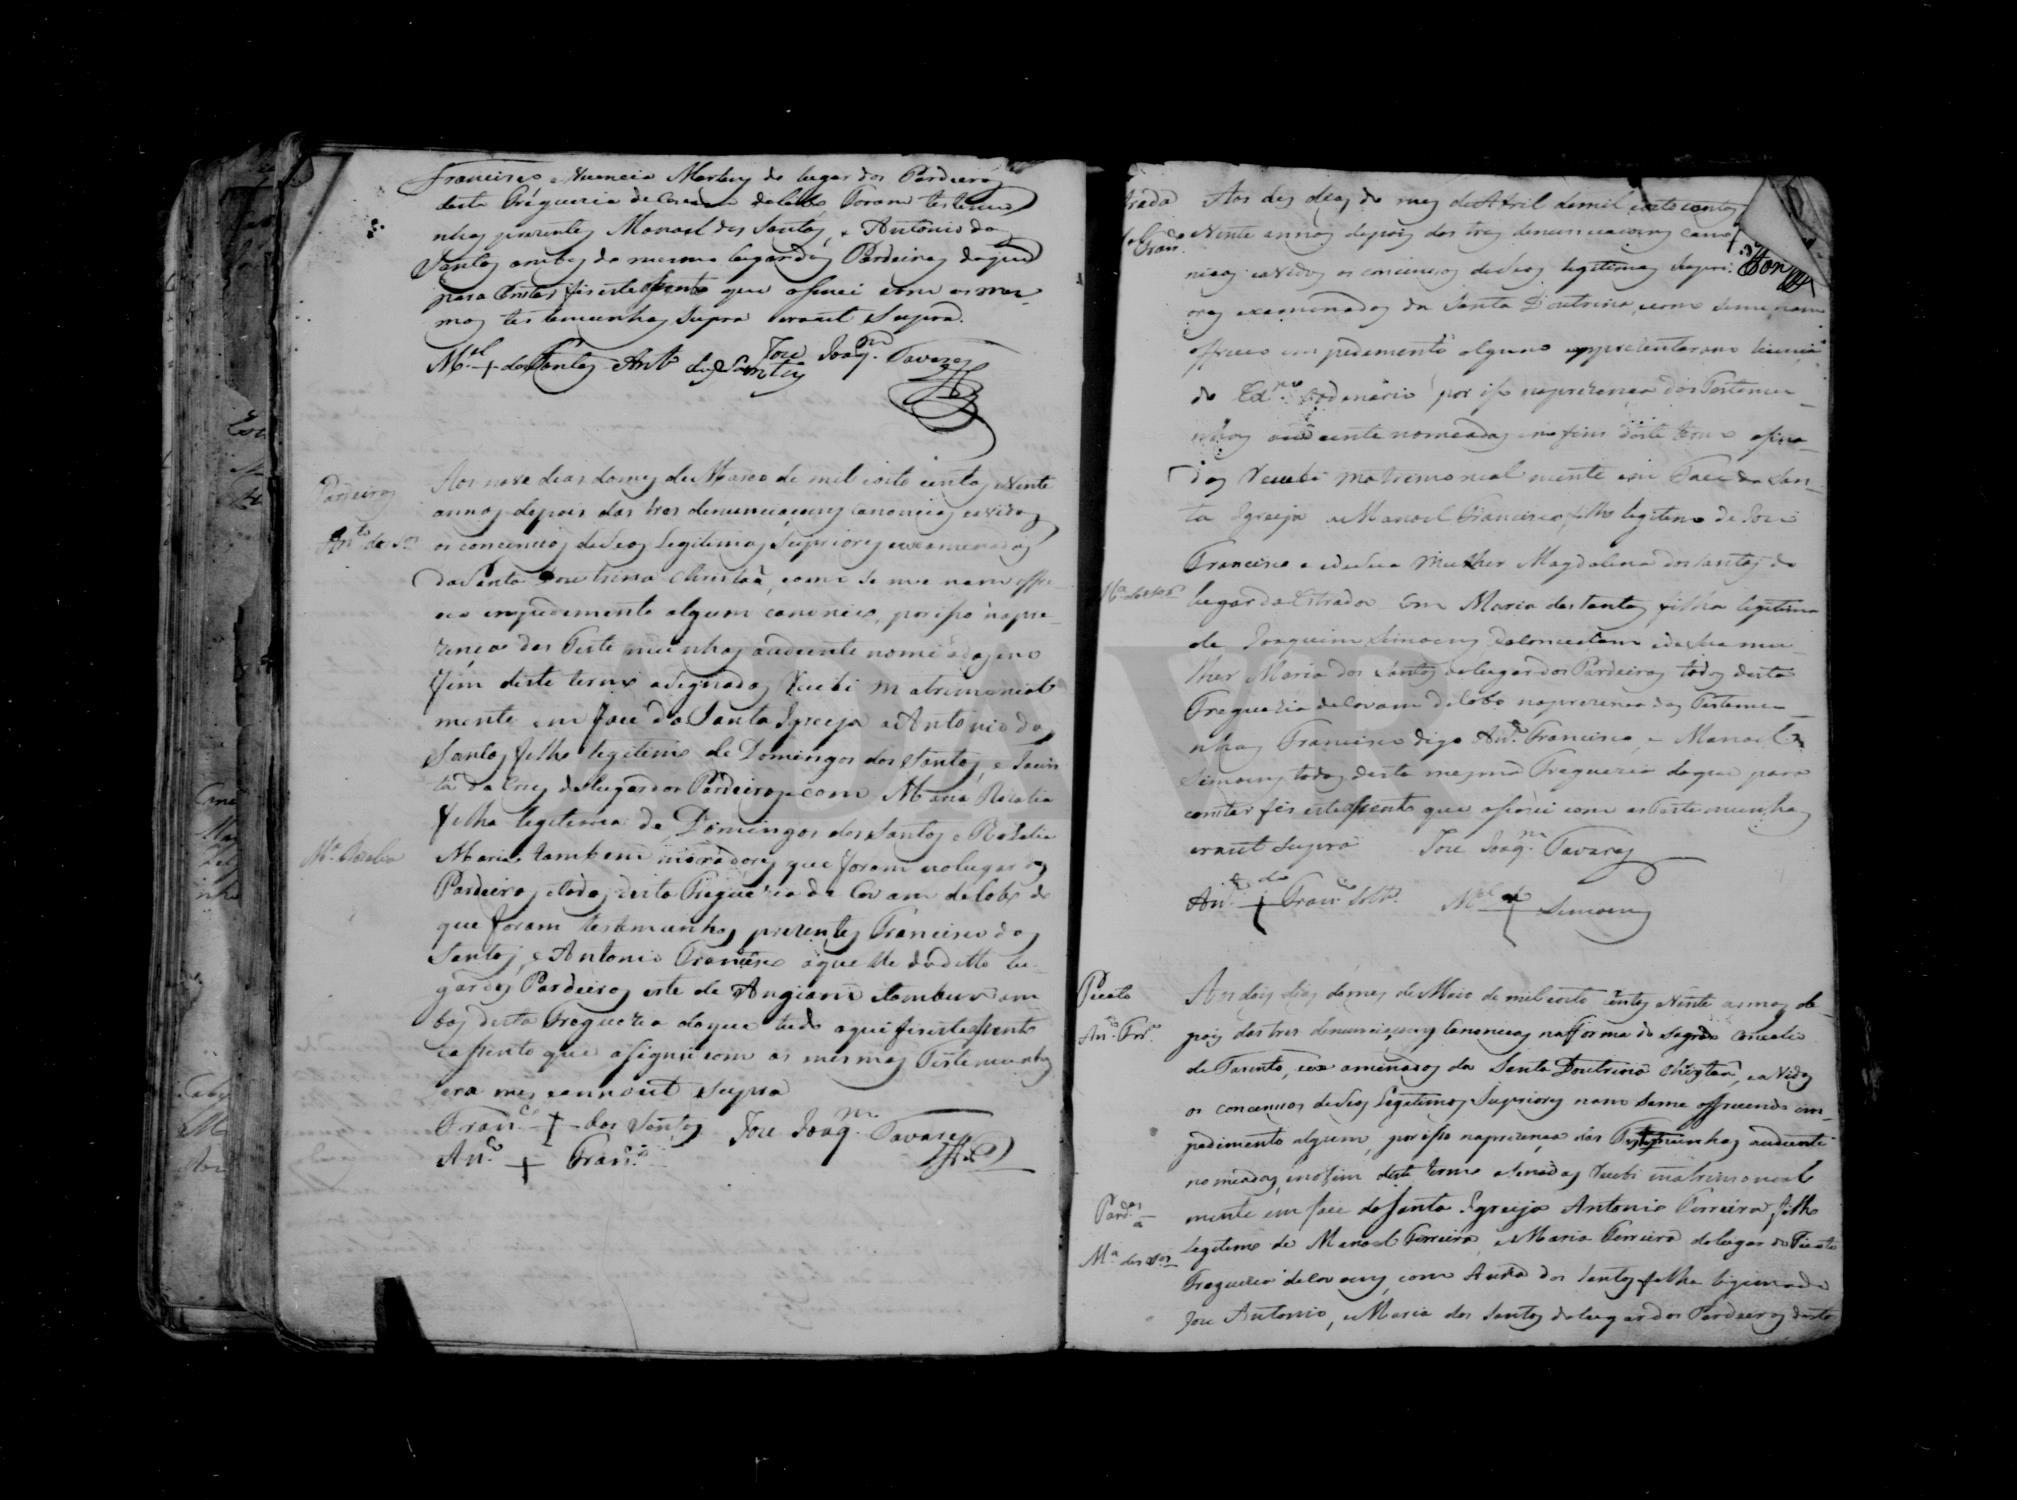 Francisco e Vicencia Martins do lugar dos Pardieiros
desta Freguezia de Covam do lobo Foram testemu
nhas prezentes Manoel dos Santos, e Antonio dos
Santos ambos do mesmo lugar dos Pardeiros do que
para Constar fis este asento que asinei com as mes
mas testemunhas supra era ut supra.
M.el + dos Santos Ant.o dos Santos Joze Joaq.m Tavares
Pardeiros
Ant.o de S.os
Aos nove dias do mes de Marco de mil oito centos e Vinte
annos depois das tres denunciaçoens canonicas e avidos
os concensos de Seos Legitimos Supriores e examenados
da Santa Doutrina Christaã, como se me nam offre
ceo impedimento algum canonico, por iso na pre
zença das Testemunhas aodiente nomeadas e no
fim deste termo asignados Recebi matrimonial
mente em face da Santa Igreja a Antonio dos
Santos filho legitimo de Domingos dos Santos, e Jacin
ta da Cruz do lugar dos Pardeiros com Maria Rozalia
M.a Rozalia
filha legitima de Domingos dos Santos e Rozalia
Maria tambem moradores que foram no lugar dos
Pardeiros e todos desta Freguezia de Covam do lobo do
que foram testemunhas prezentes Francisco dos
Santos, e Antonio Francisco aquelle do ditto lu
gar dos Pardeiros este de Angiam e tambem am
bos desta Freguezia do que tudo aqui fis este asento
asento que asignei com as mesmas Testemunhas
era mes e anno ut supra
Fran.co + dos Santos Joze Joaq.m Tavares
An.to + Fran.co
trada
Aos des dias do mes de Abril de mil oito centos
Vinte annos depois das tres denunciaçoens cano
nicas e avidos os concensos de Seos legitimos Supri
ores examenados da Santa Doutrina, e como se me nam
offreceo impedimento algum e apprezentaram licença
do Ordenario por iso na prezença das Testemu
nhas aodiente nomeadas e no fim deste termo asina
dos Recebi matremonialmente em Face da San
ta Igreja a Manoel Francisco filho legitimo de Joze
Francisco e de sua Mulher Magdalena dos Santos do
M.a dos S.os
lugar da Estrada Com Maria dos Santos filha legitima
de Joaquim Simoens e de sua mu
lher Maria dos Santos do lugar dos Pardeiros todos desta
Freguezia de Covam do lobo na prezença das Testemu
nhas Francisco digo An.to Francisco e Manoel
Simoens todos desta mesma Freguezia do que para
constar fis este asento que asinei com as Testemunhas
era ut supra Joze Joaq.m Tavares
An.to + Fran.co M.el + Simoens
Picoto
An.to Frr.a
Aos dois dias do mes de Maio de mil oito centos e Vinte annos de
pois das tres denunciaçoens Canonicas na fforma do Sagrado Concilio
de Tarento, examinados da Santa Doutrina Christaã, e avidos
os concensos de Seos Legitimos Supriores nam se me offrecendo im
pedimento algum, por iso na prezença das Testemunhas aodiente
nomeadas, e no fim deste termo asinadas Recebi matrimonial
Pard.os
mente em face da Santa Igreja Antonio Ferreira, filho
legitimo de Manoel Ferreira, e Maria Ferreira do lugar do Picoto
M.a dos S.os
Freguezia de Covoens, com Maria dos Santos filha legitima de
Joze Antonio, e Maria dos Santos do lugar dos Pardeiros desta